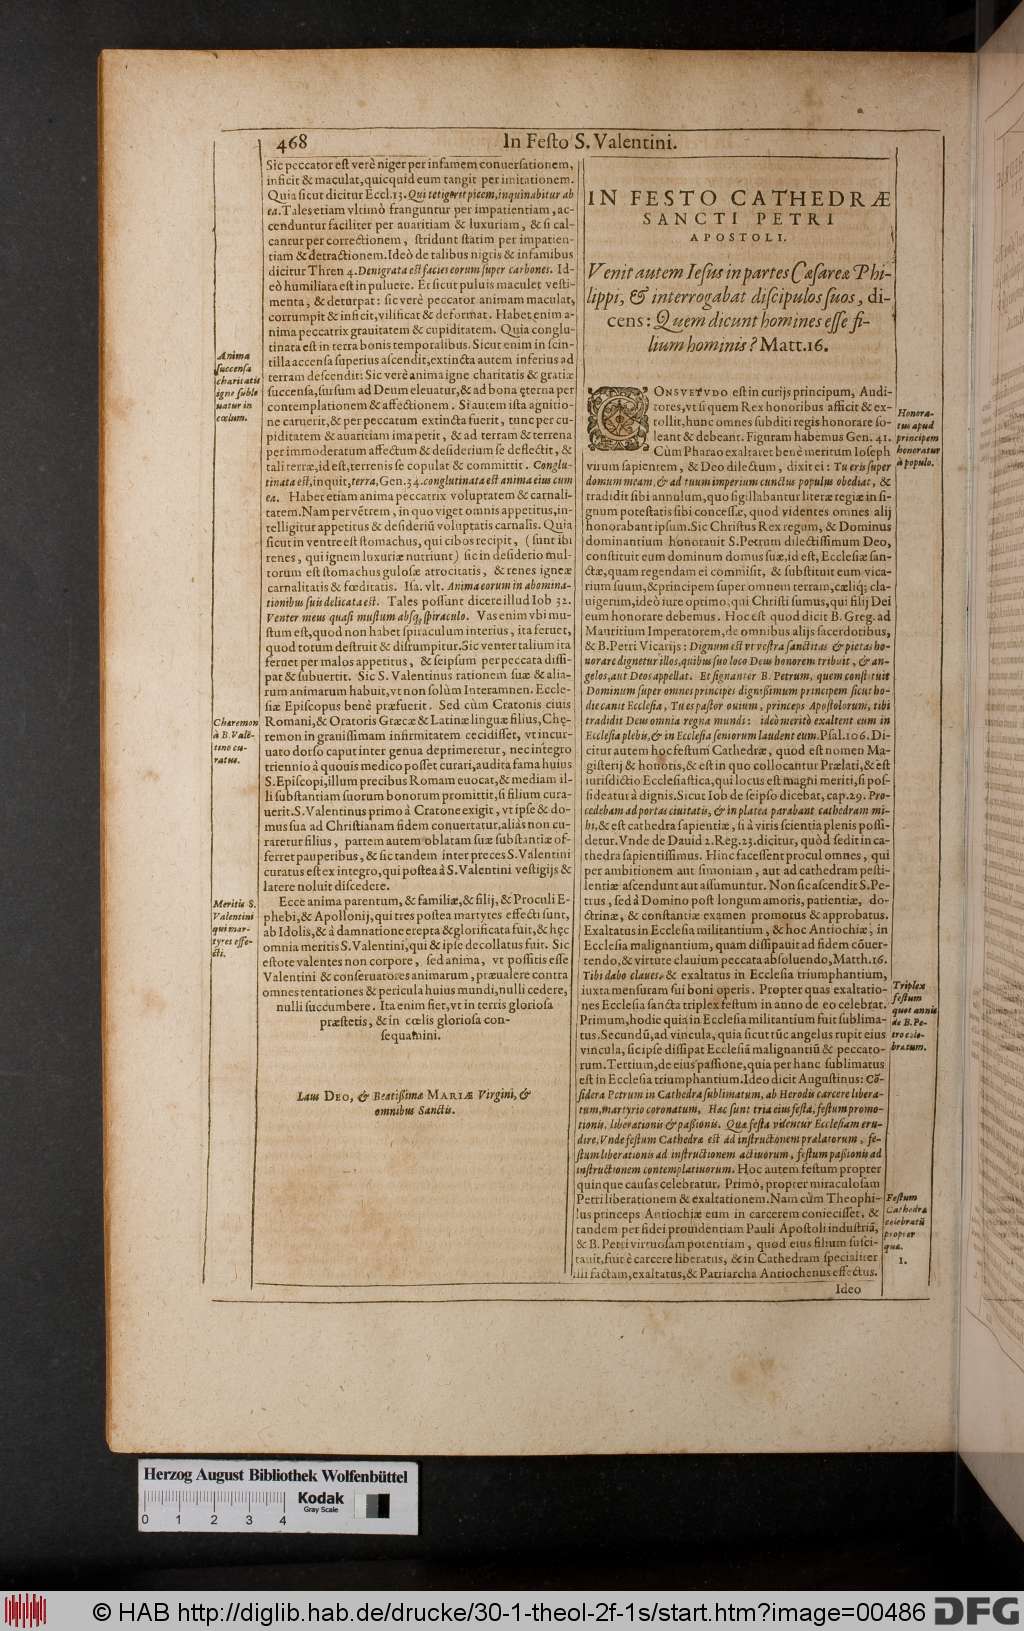 468
In Feſto S. Valentini.
Sic peccator eſt verè niger per infamem conuerſationem,
inficit & maculat, quicquid eum tangit per imitationem.
Quia ſicut dicitur Eccl. 13. Qui tetigerit picem, inquinabitur ab
ea. Tales etiam vltimò franguntur per impatientiam, ac-
cenduntur faciliter per auaritiam & luxuriam, & ſi cal-
cantur per correctionem, ſtridunt ſtatim per impatien-
tiam & detractionem. Ideò de talibus nigris & infamibus
dicitur Thren 4. Denigrata eſt facies eorum ſuper carbones. Id-
eò humiliata eſt in puluere. Et ſicut puluis maculet veſti-
menta, & deturpat: ſic verè peccator animam maculat,
corrumpit & inficit, vilificat & deformat. Habet enim a-
nima peccatrix grauitatem & cupiditatem. Quia conglu-
tinata eſt in terra bonis temporalibus. Sicut enim in ſcin-
tilla accenſa ſuperius aſcendit, extincta autem inferius ad
terram deſcendit: Sic verè anima igne charitatis & gratiæ
ſuccenſa, ſurſum ad Deum eleuatur, & ad bona ęterna per
contemplationem & affectionem. Si autem iſta agnitio-
ne caruerit, & per peccatum extincta fuerit, tunc per cu-
piditatem & auaritiam ima petit, & ad terram & terrena
per immoderatum affectum & deſiderium ſe deflectit, &
tali terræ, id eſt, terrenis ſe copulat & committit. Conglu-
tinata eſt, inquit, terra, Gen. 34. conglutinata eſt anima eius cum
ea. Habet etiam anima peccatrix voluptatem & carnali-
tatem. Nam per vẽtrem, in quo viget omnis appetitus, in-
telligitur appetitus & deſideriũ voluptatis carnalis. Quia
ſicut in ventre eſt ſtomachus, qui cibos recipit, (ſunt ibi
renes, qui ignem luxuriæ nutriunt) ſic in deſiderio mul-
torum eſt ſtomachus guloſæ atrocitatis, & renes igneæ
carnalitatis & fœditatis. Iſa. vlt. Anima eorum in abomina-
tionibus ſuis delicata eſt. Tales poſſunt dicere illud Iob 32.
Venter meus quaſi muſtum abſq; ſpiraculo. Vas enim vbi mu-
ſtum eſt, quod non habet ſpiraculum interius, ita feruet,
quod totum deſtruit & diſrumpitur. Sic venter talium ita
feruet per malos appetitus, & ſeipſum per peccata diſſi-
pat & ſubuertit. Sic S. Valentinus rationem ſuæ & alia-
rum animarum habuit, vt non ſolùm Interamnen. Eccle-
ſiæ Epiſcopus benè præfuerit. Sed cùm Cratonis ciuis
Romani, & Oratoris Græcæ & Latinæ linguæ filius, Chę-
remon in grauiſſimam infirmitatem cecidiſſet, vt incur-
uato dorſo caput inter genua deprimeretur, nec integro
triennio à quouis medico poſſet curari, audita fama huius
S. Epiſcopi, illum precibus Romam euocat, & mediam il-
li ſubſtantiam ſuorum bonorum promittit, ſi filium cura-
uerit. S. Valentinus primo à Cratone exigit, vt ipſe & do-
mus ſua ad Chriſtianam fidem conuertatur, aliàs non cu-
raretur filius, partem autem oblatam ſuæ ſubſtantiæ of-
ferret pauperibus, & ſic tandem inter preces S. Valentini
curatus eſt ex integro, qui poſtea à S. Valentini veſtigijs &
latere noluit diſcedere.
Ecce anima parentum, & familiæ, & filij, & Proculi E-
phebi, & Apollonij, qui tres poſtea martyres effecti ſunt,
ab Idolis, & à damnatione erepta & glorificata fuit, & hęc
omnia meritis S. Valentini, qui & ipſe decollatus fuit. Sic
eſtote valentes non corpore, ſed anima, vt poſſitis eſſe
Valentini & conſeruatores animarum, præualere contra
omnes tentationes & pericula huius mundi, nulli cedere,
nulli ſuccumbere. Ita enim fiet, vt in terris glorioſa
præſtetis, & in cœlis glorioſa con-
ſequamini.
Laus DEO, & Beatiſſimæ MARIÆ Virgini, &
omnibus Sanctis.
Anima
ſuccenſa
charitatis
igne ſuble
uatur in
cœlum.
Charemon
à B. Valẽ-
tino cu-
ratus.
Meritis S.
Valentini
qui mar-
tyres effe-
cti.
IN FESTO CATHEDRÆ
SANCTI PETRI
APOSTOLI.
Venit autem Ieſus in partes Cæſareæ Phi-
lippi, & interrogabat diſcipulos ſuos, di-
cens: Quem dicunt homines eſſe fi-
lium hominis? Matt. 16.
CONSVETVDO eſt in curijs principum, Audi-
tores, vt ſi quem Rex honoribus afficit & ex-
tollit, hunc omnes ſubditi regis honorare ſo-
leant & debeant. Figuram habemus Gen. 41.
Cùm Pharao exaltaret benè meritum Ioſeph
virum ſapientem, & Deo dilectum, dixit ei: Tu eris ſuper
domum meam, & ad tuum imperium cunctus populus obediat, &
tradidit ſibi annulum, quo ſigillabantur literæ regiæ in ſi-
gnum poteſtatis ſibi conceſſæ, quod videntes omnes alij
honorabant ipſum. Sic Chriſtus Rex regum, & Dominus
dominantium honorauit S. Petrum dilectiſſimum Deo,
conſtituit eum dominum domus ſuæ, id eſt, Eccleſiæ ſan-
ctæ, quam regendam ei commiſit, & ſubſtituit eum vica-
rium ſuum, & principem ſuper omnem terram, cæliq; cla-
uigerum, ideò iure optimo, qui Chriſti ſumus, qui filij Dei
eum honorare debemus. Hoc eſt quod dicit B. Greg. ad
Mauritium Imperatorem, de omnibus alijs ſacerdotibus,
& B. Petri Vicarijs: Dignum eſt vt veſtra ſanctitas & pietas ho-
norare dignetur illos, quibus ſuo loco Deus honorem tribuit, & an-
gelos, aut Deos appellat. Et ſignanter B. Petrum, quem conſtituit
Dominum ſuper omnes principes digniſſimum principem ſicut ho-
die canit Eccleſia, Tu es paſtor ouium, princeps Apoſtolorum, tibi
tradidit Deus omnia regna mundi: ideò meritò exaltent eum in
Eccleſia plebis, & in Eccleſia ſeniorum laudent eum. Pſal. 106. Di-
citur autem hoc feſtum Cathedræ, quod eſt nomen Ma-
giſterij & honoris, & eſt in quo collocantur Prælati, & eſt
iuriſdictio Eccleſiaſtica, qui locus eſt magni meriti, ſi poſ-
ſideatur à dignis. Sicut Iob de ſeipſo dicebat, cap. 29. Pro-
cedebam ad portas ciuitatis, & in platea parabant cathedram mi-
hi, & eſt cathedra ſapientiæ, ſi à viris ſcientia plenis poſſi-
detur. Vnde de Dauid 2. Reg. 23. dicitur, quòd ſedit in ca-
thedra ſapientiſſimus. Hinc faceſſent procul omnes, qui
per ambitionem aut ſimoniam, aut ad cathedram peſti-
lentiæ aſcendunt aut aſſumuntur. Non ſic aſcendit S. Pe-
trus, ſed à Domino poſt longum amoris, patientiæ, do-
ctrinæ, & conſtantiæ examen promotus & approbatus.
Exaltatus in Eccleſia militantium, & hoc Antiochiæ, in
Eccleſia malignantium, quam diſſipauit ad fidem cõuer-
tendo, & virtute clauium peccata abſoluendo, Matth. 16.
Tibi dabo claues, & exaltatus in Eccleſia triumphantium,
iuxta menſuram ſui boni operis. Propter quas exaltatio-
nes Eccleſia ſancta triplex feſtum in anno de eo celebrat.
Primum, hodie quia in Eccleſia militantium fuit ſublima-
tus. Secundũ, ad vincula, quia ſicut tũc angelus rupit eius
vincula, ſic ipſe diſſipat Eccleſiã malignantiũ & peccato-
rum. Tertium, de eius paſſione, quia per hanc ſublimatus
eſt in Eccleſia triumphantium. Ideo dicit Auguſtinus: Cõ-
ſidera Petrum in Cathedra ſublimatum, ab Herodis carcere libera-
tum, martyrio coronatum, Hac ſunt tria eius feſta, feſtum promo-
tionis, liberationis & paſſionis. Quæ feſta videntur Eccleſiam eru-
dire, Vnde feſtum Cathedræ eſt ad inſtructionem prælatorum, fe-
ſtum liberationis ad inſtructionem actiuorum, feſtum paſſionis ad
inſtructionem contemplatiuorum. Hoc autem feſtum propter
quinque cauſas celebratur. Primò, propter miraculoſam
Petri liberationem & exaltationem. Nam cùm Theophi-
lus princeps Antiochiæ eum in carcerem conieciſſet, &
tandem per fidei prouidentiam Pauli Apoſtoli induſtriã,
& B. Petri virtuoſam potentiam, quod eius filium ſuſci-
tauit, fuit è carcere liberatus, & in Cathedram ſpecialiter
illi factam, exaltatus, & Patriarcha Antiochenus effectus.
Ideo
Honora-
tus apud
principem
honoratur
à populo.
Triplex
feſtum
quot annis
de B. Pe-
tro cele-
bratum.
Feſtum
Cathedræ
celebratũ
propter
quæ.
1.
Herzog August Bibliothek Wolfenbüttel
Kodak
Gray Scale
0 1 2 3 4
© HAB http://diglib.hab.de/drucke/30-1-theol-2f-1s/start.htm?image=00486
DFG